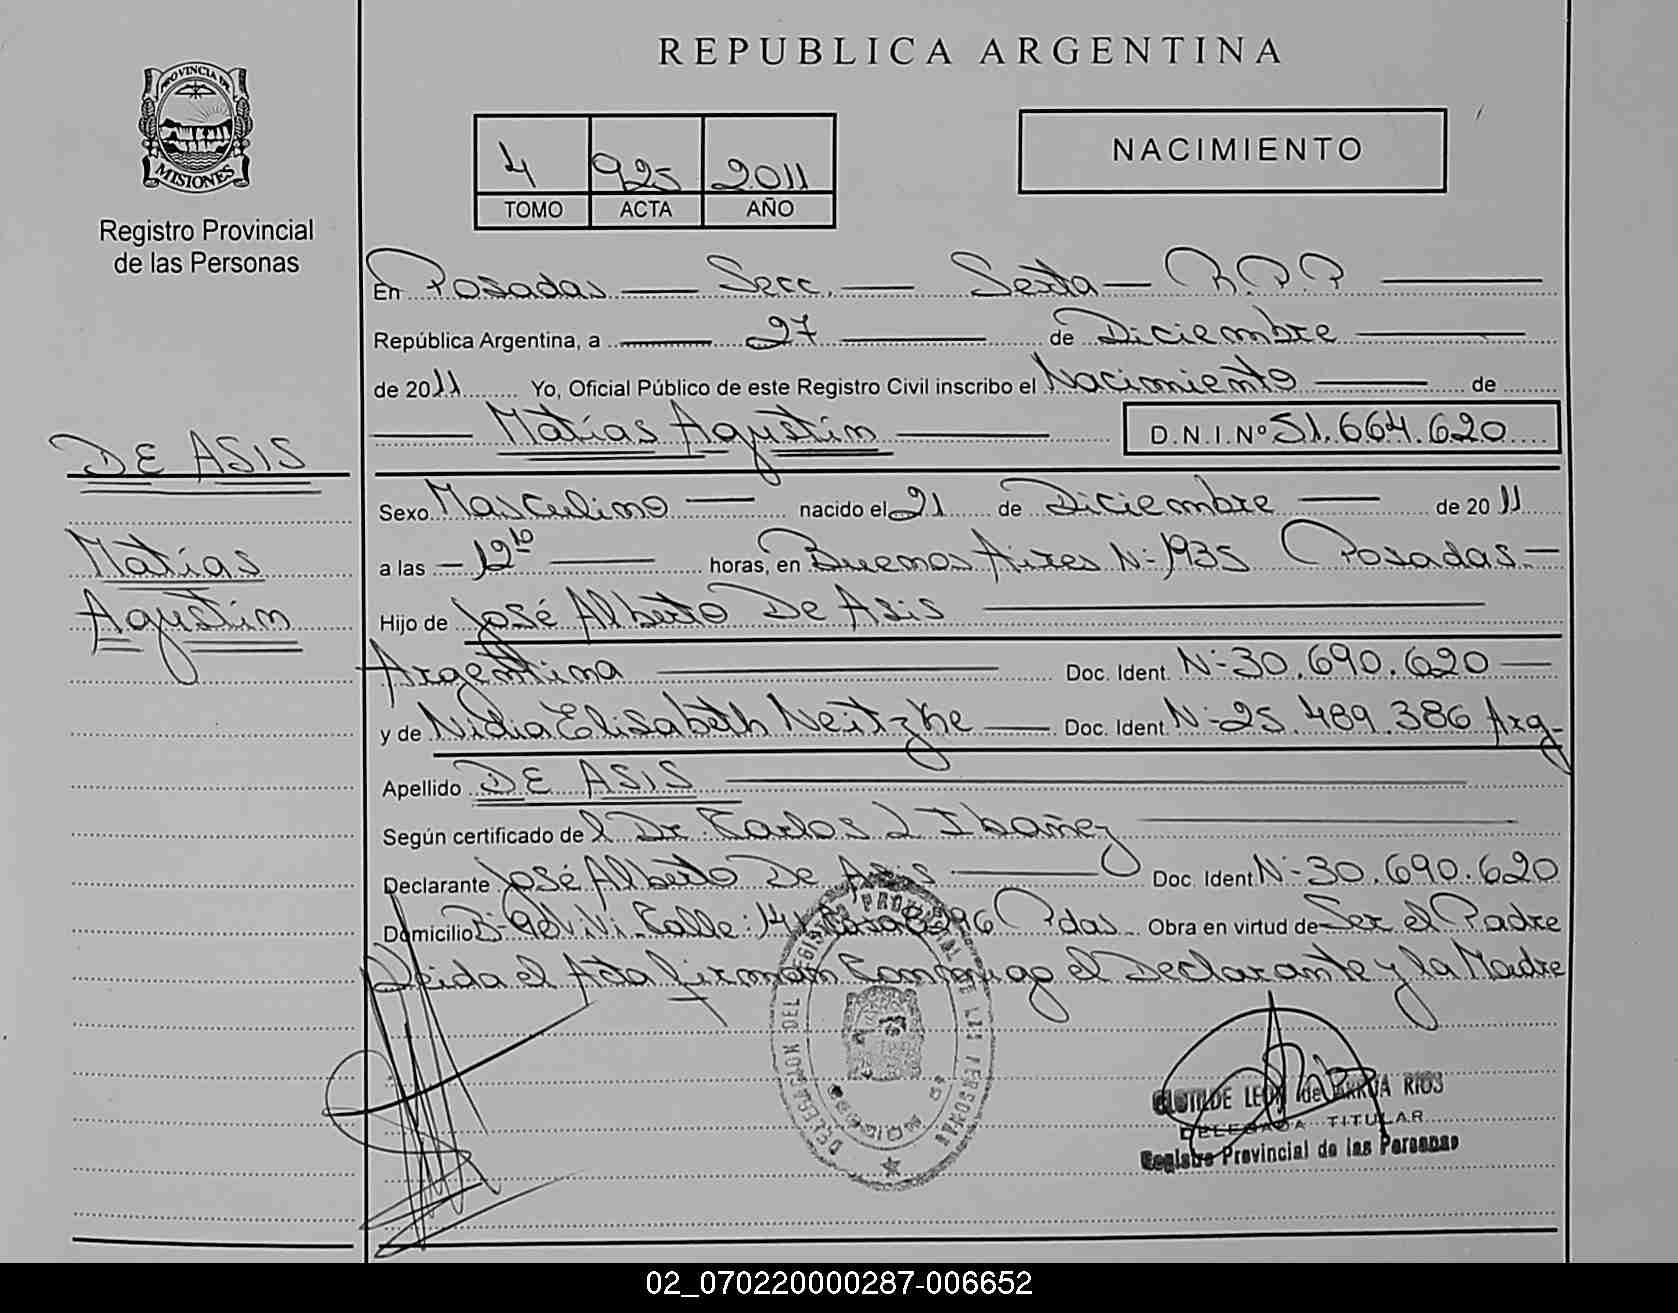 REPUBLICA ARGENTINA
PROVINCIA DE
MISIONES
Registro Provincial
de las Personas
4 925 2011
TOMO ACTA AÑO
NACIMIENTO
En Posadas — Secc. — Sexta — R.P.P —
República Argentina, a — 27 — de Diciembre —
de 2011 Yo, Oficial Público de este Registro Civil inscribo el Nacimiento — de
— Matías Agustín — D.N.I.Nº 51.664.620
DE ASIS
Matías
Agustín
Sexo Masculino — nacido el 21 de Diciembre — de 2011
a las — 12 10 — horas, en Buenos Aires Nº 1935 Posadas —
Hijo de José Alberto De Asis —
Argentina — Doc. Ident. Nº 30.690.620 —
y de Nidia Elisabeth Neitzke — Doc. Ident. Nº 25.489.386 Arg-
Apellido DE ASIS —
Según certificado de l Dr. Carlos J Ibañez —
Declarante José Alberto De Asis — Doc. Ident Nº 30.690.620
Domicilio Bº Calle: Pdas. Obra en virtud de Ser el Padre
Leida el Acta firman Conmigo el Declarante y la Madre
DELEGACION DEL REGISTRO PROVINCIAL DE LAS PERSONAS
CLOTILDE LEON de RIOS
DELEGADA TITULAR
Registro Provincial de las Personas
02_070220000287-006652